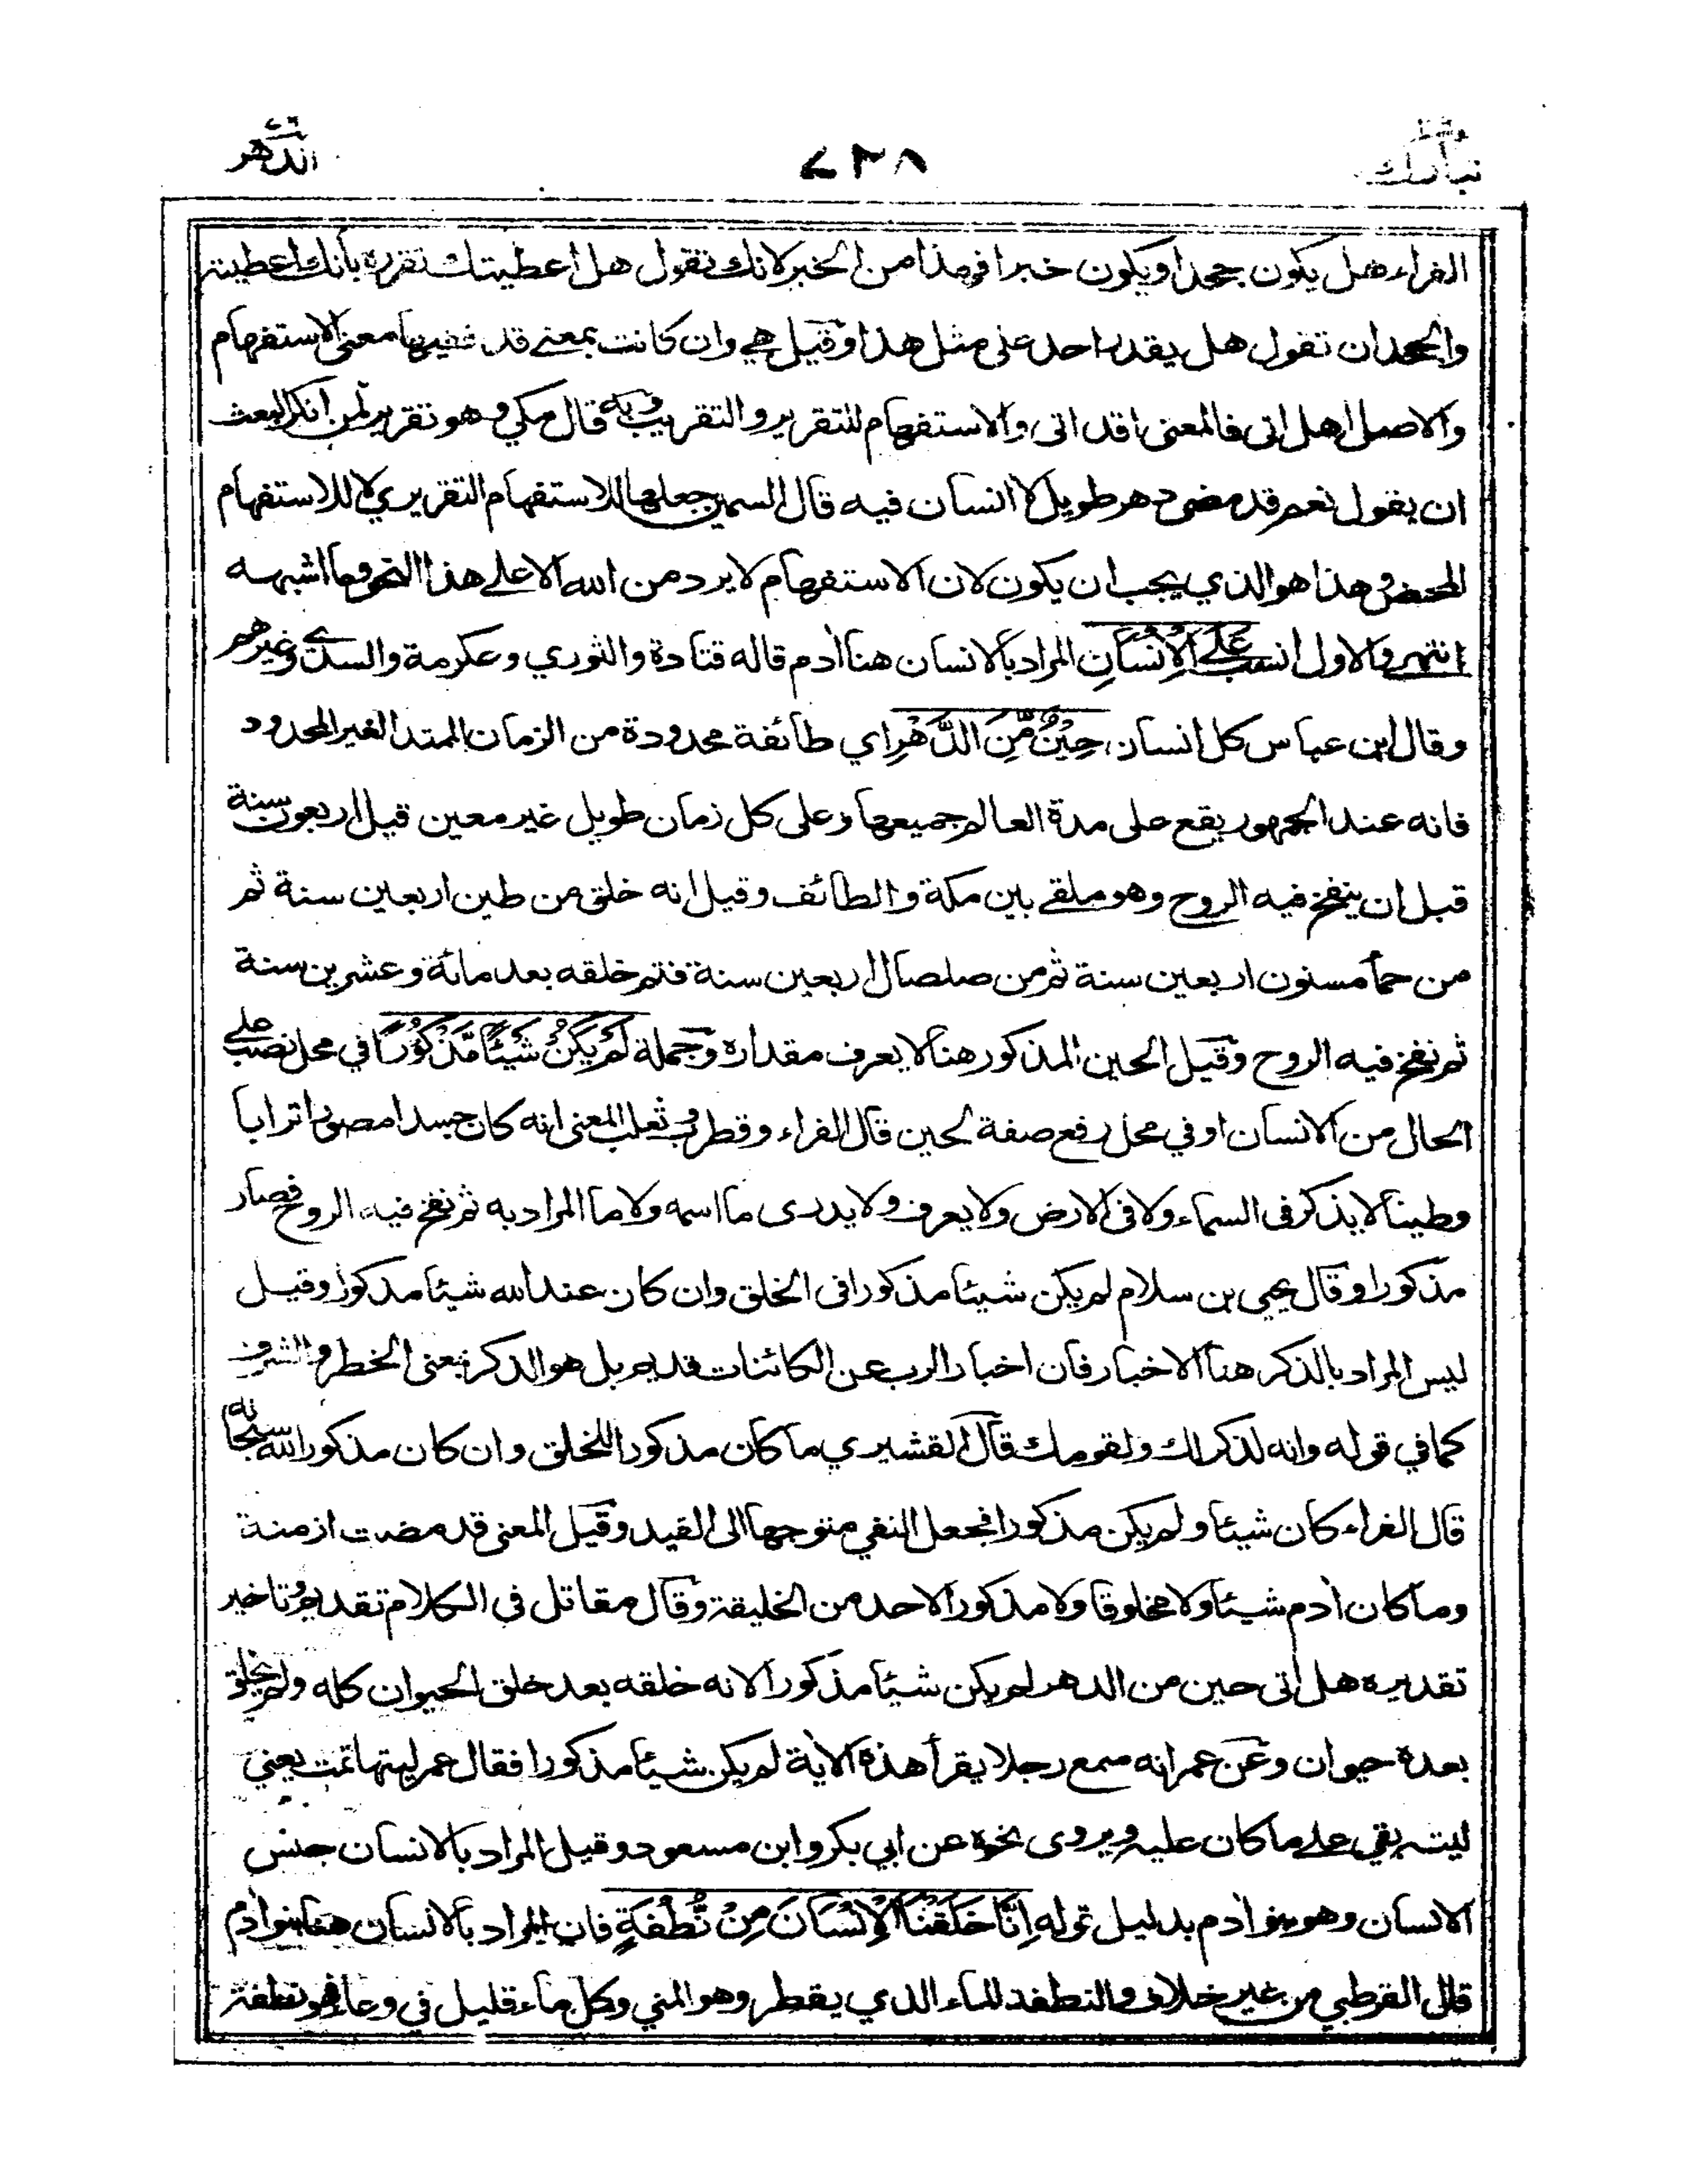 تبارك ٤٣٨ الدهر
الفراء هل يكون جحدا ويكون خبرا فهذا من الخبر لانك تقول هل اعطيتك تقرره بأنك اعطيته
والجحد ان تقول هل يقدر احد على مثل هذا وقيل هي وان كانت بمعنى قد ففيها معنى الاستفهام
والاصل اهل اتى فالمعنى اقد اتى والاستفهام للتقرير والتقريب وبه قال مكي وهو تقرير لمن انكر البعث
ان يقول نعم قد مضى دهر طويل لا انسان فيه قال السمين جعلها للاستفهام التقريري لا للاستفهام
المحض وهذا هو الذي يجب ان يكون لان الاستفهام لا يرد من الله الا على هذا النحو وما اشبهه
انتهى والاول انسب عَلَى الْإِنْسَانِ المراد بالانسان هنا أدم قاله قتادة والثوري وعكرمة والسدي وغيرهم
وقال ابن عباس كل انسان حِيْنٌ مِّنَ الدَّهْرِ اي طائفة محدودة من الزمان الممتد الغير المحدود
فانه عند الجمهور يقع على مدة العالم جميعها وعلى كل زمان طويل غير معين قيل اربعون سنة
قبل ان ينفخ فيه الروح وهو ملقى بين مكة والطائف وقيل انه خلق من طين اربعين سنة ثم
من حمأ مسنون اربعين سنة ثم من صلصال اربعين سنة فتم خلقه بعد مائة وعشرين سنة
ثم نفخ فيه الروح وقيل الحين المذكور هنا لا يعرف مقداره وجملة لَمْ يَكُنْ شَيْئًا مَّذْكُوْرًا في محل نصب على
الحال من الانسان او في محل رفع صفة لحين قال الفراء وقطرب وثعلب المعنى انه كان جسدا مصورا ترابا
وطينا لا يذكر في السماء ولا في الارض ولا يعرف ولا يدرى ما اسمه ولا ما المراد به ثم نفخ فيه الروح فصار
مذكورا وقال يحيى بن سلام لم يكن شيئا مذكورا في الخلق وان كان عند الله شيئا مذكورا وقيل
ليس المراد بالذكر هنا الاخبار فان اخبار الرب عن الكائنات قديم بل هو الذكر بمعنى الخطر والشرف
كما في قوله وانه لذكر لك ولقومك قال القشيري ما كان مذكورا للخلق وان كان مذكورا لله سبحانه
قال الفراء كان شيئا ولم يكن مذكورا فجعل النفي متوجها الى القيد وقيل المعنى قد مضت ازمنة
وما كان أدم شيئا ولا مخلوقا ولا مذكورا لاحد من الخليقة وقال مقاتل في الكلام تقديم وتاخير
تقديره هل اتى حين من الدهر لم يكن شيئا مذكورا لانه خلقه بعد خلق الحيوان كله ولم يخلق
بعده حيوان وعن عمر انه سمع رجلا يقرأ هذه الأية لم يكن شيئا مذكورا فقال عمر ليتها تمت يعني
ليته بقي على ما كان عليه ويروى نحوه عن ابي بكر وابن مسعود وقيل المراد بالانسان جنس
الانسان وهو بنو أدم بدليل قوله اِنَّا خَلَقْنَا الْإِنْسَانَ مِنْ نُّطْفَةٍ فان المراد بالانسان هنا بنو أدم
قال القرطبي من غير خلاف والنطفة الماء الذي يقطر وهو المني وكل ماء قليل في وعاء فهو نطفة